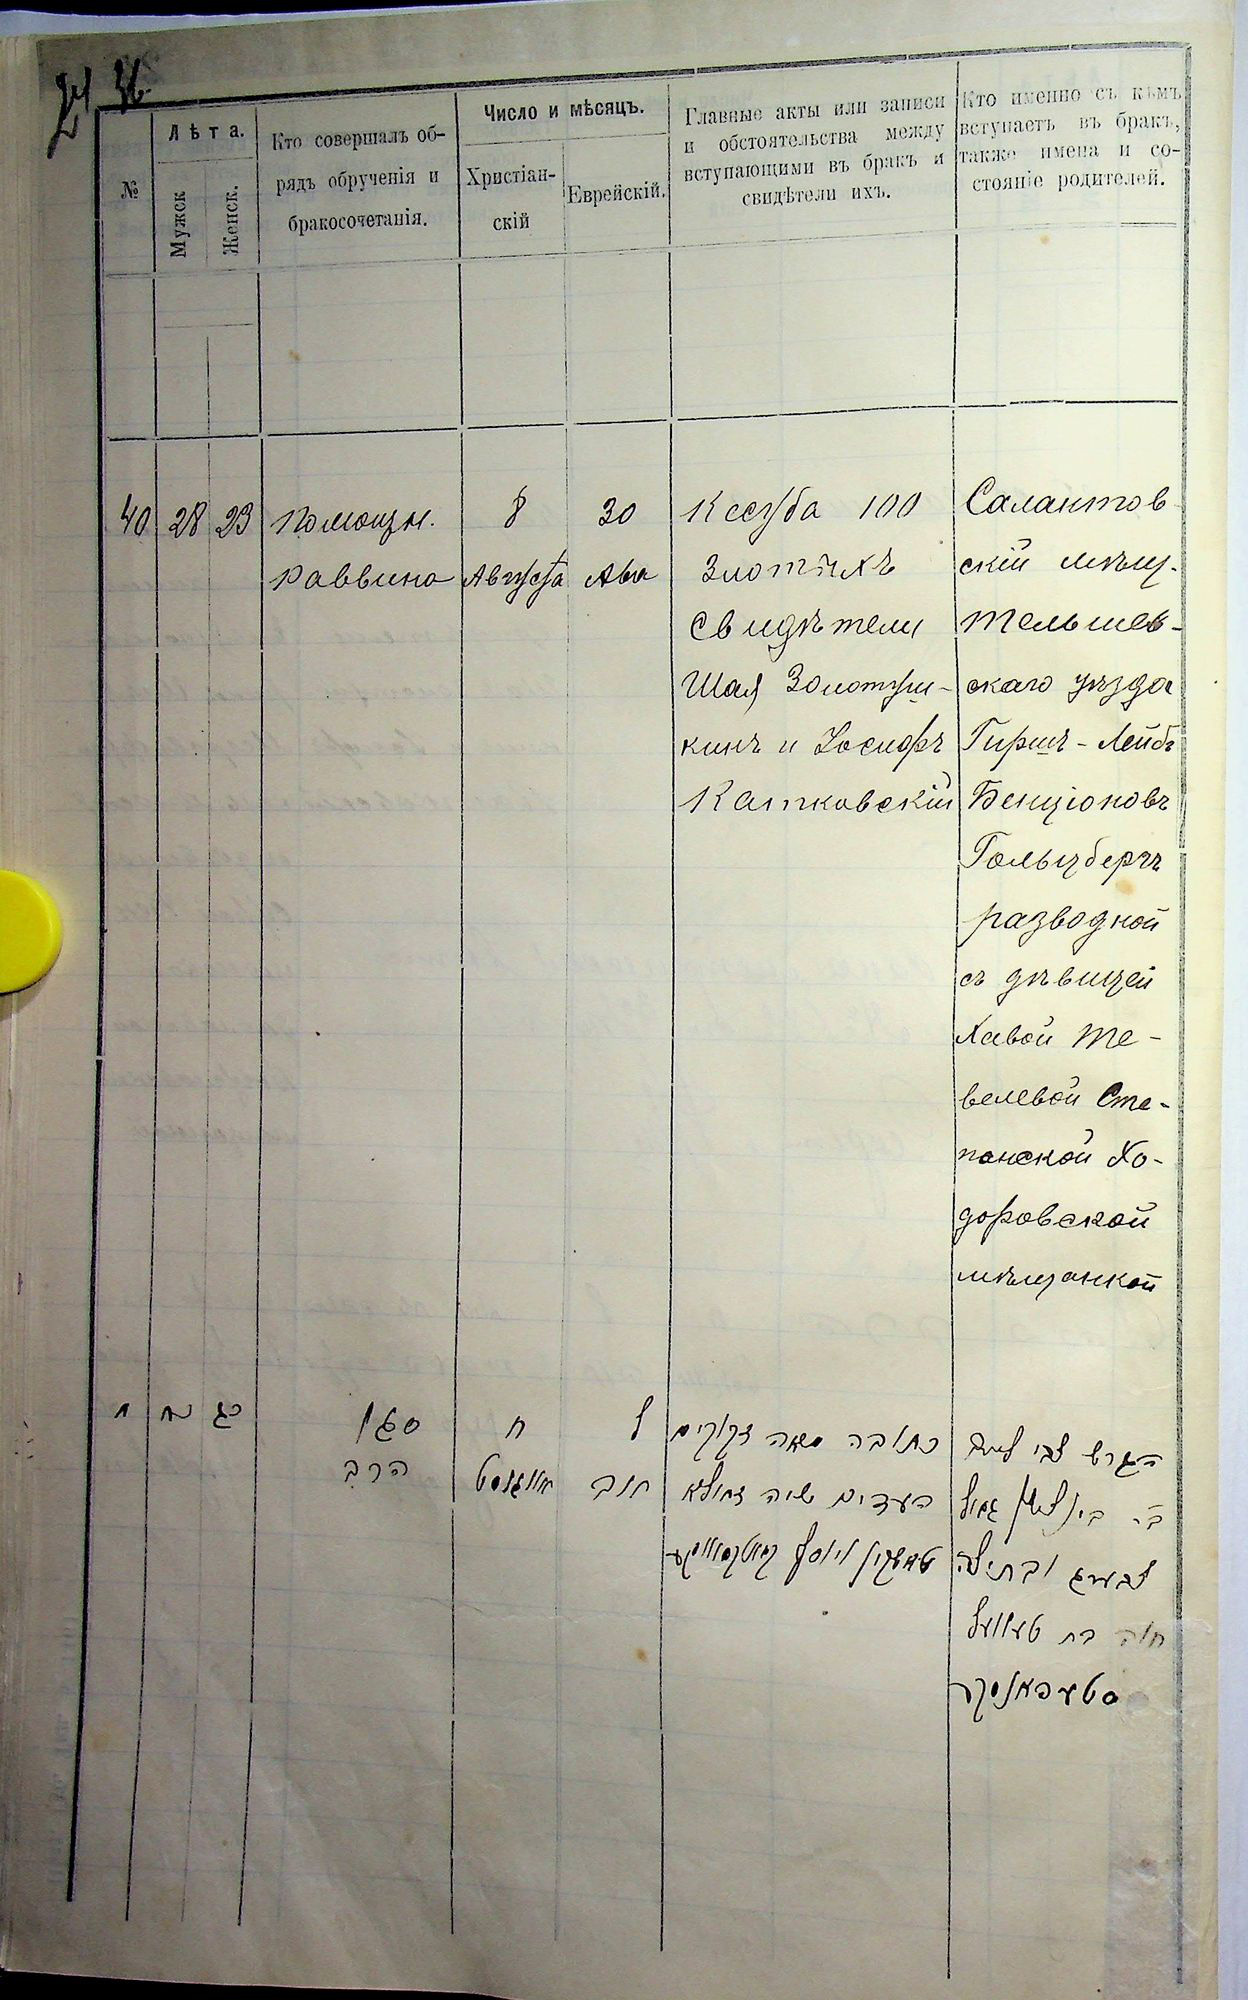 24 36.
№
Лѣта.
Мужск
Женск.
Кто совершалъ об-
рядъ обрученія и
бракосочетанія.
Число и мѣсяцъ.
Христіан-
скій
Еврейскій.
Главные акты или записи
и обстоятельства между
вступающими въ бракъ и
свидѣтели ихъ.
Кто именно съ кѣмъ
вступаетъ въ бракъ,
также имена и со-
стояніе родителей.
40
28
23
Помощн.
Раввина
8
Августа
30
Ава
Кесуба 100
Злотыхъ
Свидѣтели
Шая Золотуш-
кинъ и Іосифъ
Катковскій
Салантов
скій мѣщ.
Тельшев-
скаго уѣзда
Гиршъ-Лейбъ
Бенціоновъ
Гольцбергъ
разводной
съ дѣвицей
Хавой Те-
велевой Сте-
панской Хо-
доровской
мѣщанкой
כח
כג
סגן
הרב
ח
אווגוסט
ל
כתובה מאה זקוקים
העדים שיה
הגרש צבי
ובתולה
חוה בת טעוועל
סטעפאנסקי